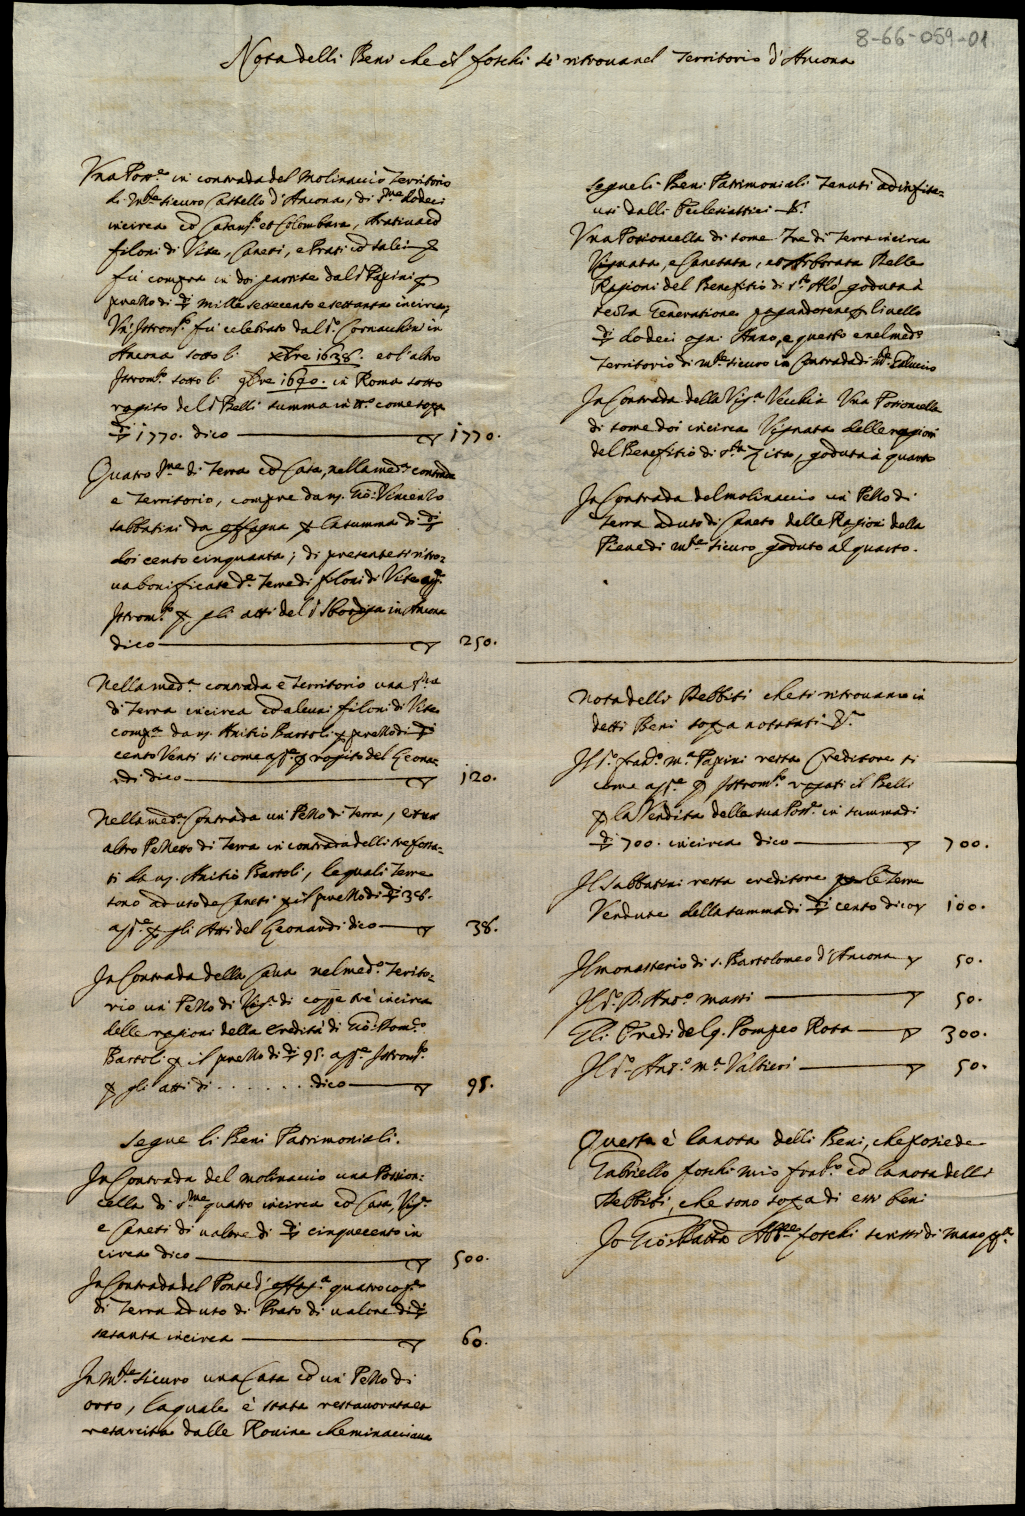 8-66-059-01
Nota delli Beni che il foschi si ritroua nel Territorio d'Ancona
Vna Poss.e in contrada del Molinaccio Territorio
di M.te sicuro Castello d'Ancona, di s.me dodeci
incirca cò Casa et Colombara, Aratiua cò
filoni di Vite, Caneti, e Prati cò salci
fù compra in doi partite dal s.r Papini p
prezzo di mille settecento e settanta incirca,
Vn' Istrom.to fù celebrato dal s.r Cornacchini in
Ancona sotto li Xbre 1638. et l'altro
Istrom.to sotto li 9bre 1640. in Roma sotto
rogito del s.r Belli summa in tt.o come sopa
1770. dico 1770.
Quatro s.me di Terra cò Casa, nella med.a contrada
e Territorio, compre da m. Gio: Vincenzo
sabbatini da offagna p la summa di
doi cento cinquanta; di presente si ritro=
ua bonificate d.e Terre di filoni di Vite app.e
Istrom.to p gli atti del s.r in Ancona
dico 250.
Nella med.a contrada e Territorio una s.ma
di Terra incirca cò alcuni filoni di Vite
comp.a da m. Anitio Bartoli p prezzo di
cento Venti si come app.e p rogito del Leona=
rdi dico 120.
Nella med.a Contrada un' Pezzo di Terra, et un
altro Pezzetto di Terra in contrada delli trefossa=
ti da m. Anitio Bartoli, le quali Terre
sono ad uso de Caneti p il prezzo di 38.
app.e p gli Atti del Leonardi dico 38.
In Contrada della Caua nel med.o Terito=
rio un' Pezzo di Vig.a di coppe trè incirca
delle ragioni della Eredità di Gio: Dom.co
Bartoli p il prezzo di 95. app.e Istrom.to
p gli atti di . . . . . . . dico 95.
Segue li Beni Patrimoniali.
In Contrada del molinaccio una Possion=
cella di s.me quatro incirca cò Casa, Vig.a
e Caneti di valore di cinquecento in
circa dico 500.
In Contrada del Ponte d'offag.a quatro cop.e
di Terra ad uso di Prato di valore di
sesanta incirca 60.
In M.te sicuro una Casa cò un' Pezzo di
orto, la quale è stata restaurata et
resarcita dalle Rouine che minacciaua
Segue li Beni Patrimoniali Tenuti ad infite=
usi dalli Ecclesiastici
Vna Posioncella di some Tre di Terra incirca
Vignata, e Canetata, et Arborata Delle
Ragioni del Benefitio di s.to Alò goduta à
terza Generatione pagandosene p liuello
dodeci ogni Anno, e questo è nel med.o
Territorio di M.te sicuro in Contrada di
In Contrada della Vig.a Vecchia Vna Posioncella
di some doi incirca Vignata delle ragioni
del Benefitio di s.ta Zita, goduta à quarto
In Contrada del molinaccio un' Pezzo di
Terra ad uso di Caneto delle Ragioni della
Pieue di M.te sicuro goduto al quarto.
Nota delli Debbiti che si ritrouano in
detti Beni sopa notati
Il s.r m.a Papini resta Creditore si
come app.e p Istrom.to rogati il Belli
p la Vendita della sua Poss.e in summa di
700. incirca dico 700.
Il sabbatini resta creditore p le Terre
Vendute della summa di cento dico 100.
Il monasterio di s. Bartolomeo d'Ancona 50.
Il s.r D. Ant.o massi 50.
Gli Eredi del q. Pompeo Rosa 300.
Il s.r Ant.o M.a Valtieri 50.
Questa è la nota delli Beni, che posiede
Gabriello foschi mio frat.lo cò la nota delli
Debbiti, che sono sopa di essi beni
Io Gio: Batta Abb.e foschi scrissi di mano pp.a